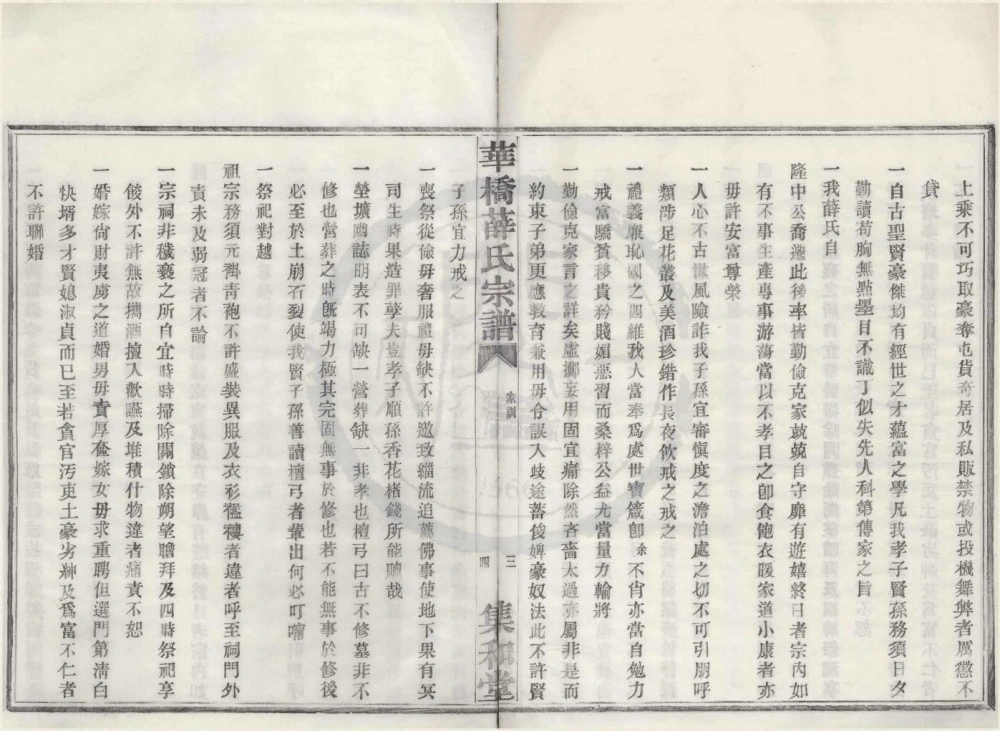 上乘不可巧取豪奪屯貨奇居及私販禁物或投機舞弊者厲懲不
貸
一自古聖賢豪傑均有經世之才蘊富之學凡我孝子賢孫務須日夕
勤讀苟胸無點墨目不識丁似失先人科第傳家之旨
一我薛氏自
隆中公喬遷此後率皆勤儉克家兢兢自守靡有遊嬉終日者宗內如
有不事生產專事游蕩當以不孝目之卽食飽衣暖家道小康者亦
毋許安富尊榮
一人心不古世風險詐我子孫宜審愼度之澹泊處之切不可引朋呼
類涉足花叢及美酒珍錯作長夜飲戒之戒之
一禮義廉恥國之四維我人當奉爲處世寶箴卽余不肖亦當自勉力
戒富驕貧移貴矜賤媚惡習而桑梓公益尤當量力輸將
一勤儉克家言之詳矣虛擲妄用固宜痛除然吝嗇太過亦屬非是而
約束子弟更應敎育兼用毋令誤入歧途蓄俊婢豪奴法此不許賢
華橋薛氏宗譜
家訓
三
四
集和堂
子孫宜力戒之
一喪祭從儉毋奢服禮毋缺不許邀致緇流追薦佛事使地下果有冥
司生時果造罪孽夫豈孝子順孫香花楮錢所能贖哉
一塋壙幽誌明表不可缺一營葬缺一非孝也檀弓曰古不修墓非不
修也當葬之時旣竭力極其完固無事於修也若不能無事於修後
必至於土崩石裂使我賢子孫善讀檀弓者輩出何必叮嚀
一祭祀對越
祖宗務須元褂靑袍不許盛裝異服及衣衫襤褸者違者呼至祠門外
責未及弱冠者不論
一宗祠非穢褻之所自宜時時掃除關鎖除朔望瞻拜及四時祭祀享
餕外不許無故攜酒擅入歡讌及堆積什物違者痛責不恕
一婚嫁尙財夷虜之道婚男毋責厚奩嫁女毋求重聘但選門第淸白
快壻多才賢媳淑貞而已至若貪官汚吏土豪劣紳及爲富不仁者
不許聯婚